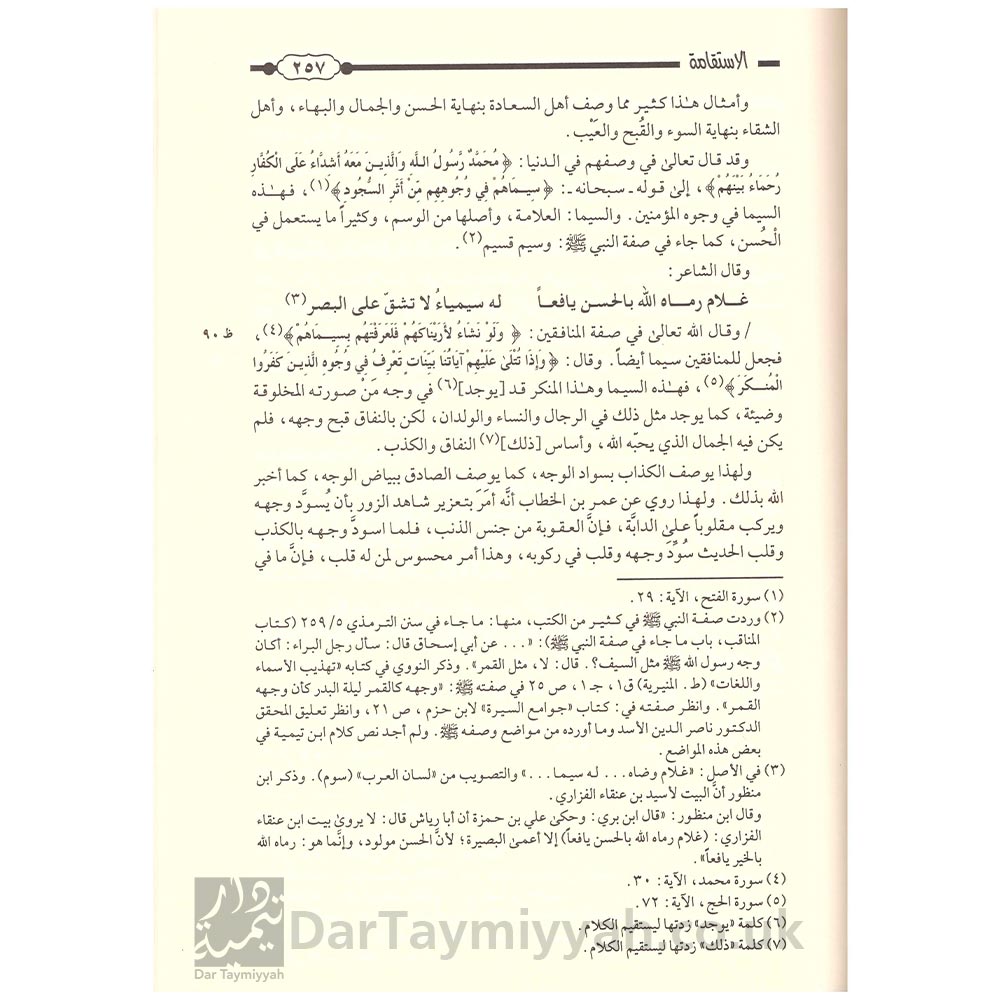 الاستقامة
٢٥٧
وأمثال هذا كثير مما وصف أهل السعادة بنهاية الحسن والجمال والبهاء، وأهل
الشقاء بنهاية السوء والقُبح والعَيْب.
وقد قال تعالىٰ في وصفهم في الدنيا: ﴿ مُحَمَّدٌ رَسُولُ اللَّهِ وَالَّذِينَ مَعَهُ أَشِدَّاءُ عَلَى الْكُفَّارِ
رُحَمَاءُ بَيْنَهُمْ﴾، إلىٰ قوله ـ سبحانه ـ: ﴿سِيمَاهُمْ فِي وُجُوهِهِم مِّنْ أَثَرِ السُّجُودِ﴾(١)، فهٰذه
السيما في وجوه المؤمنين. والسيما: العلامة، وأصلها من الوسم، وكثيراً ما يستعمل في
الْحُسن، كما جاء في صفة النبي ﷺ: وسيم قسيم(٢).
وقال الشاعر:
غلام رماه الله بالحسن يافعاً له سيمياءُ لا تشقّ على البصر(٣)
/ وقال الله تعالىٰ في صفة المنافقين: ﴿ وَلَوْ نَشَاءُ لأَرَيْنَاكَهُمْ فَلَعَرَفْتَهُم بِسِيمَاهُمْ﴾(٤)،
ظ ٩٠
فجعل للمنافقين سيما أيضاً. وقال: ﴿وَإِذَا تُتْلَىٰ عَلَيْهِمْ آيَاتُنَا بَيِّنَاتٍ تَعْرِفُ فِي وُجُوهِ الَّذِينَ كَفَرُوا
الْمُنكَرَ﴾(٥)، فهٰذه السيما وهٰذا المنكر قد [يوجد](٦) في وجه مَنْ صورته المخلوقة
وضيئة، كما يوجد مثل ذلك في الرجال والنساء والولدان، لكن بالنفاق قبح وجهه، فلم
يكن فيه الجمال الذي يحبّه الله، وأساس [ذلك](٧) النفاق والكذب.
ولهذا يوصف الكذاب بسواد الوجه، كما يوصف الصادق ببياض الوجه، كما أخبر
الله بذلك. ولهذا روي عن عمر بن الخطاب أنَّه أمَرَ بتعزير شاهد الزور بأن يُسوَّد وجهه
ويركب مقلوباً علىٰ الدابَّة، فإنَّ العقوبة من جنس الذنب، فلما اسودَّ وجهه بالكذب
وقلب الحديث سُوِّدَ وجهه وقلب في ركوبه، وهذا أمر محسوس لمن له قلب، فإنَّ ما في
(١) سورة الفتح، الآية: ٢٩.
(٢) وردت صفة النبي ﷺ في كثير من الكتب، منها: ما جاء في سنن الترمذي ٢٥٩/٥ (كتاب
المناقب، باب ما جاء في صفة النبي ﷺ): «... عن أبي إسحاق قال: سأل رجل البراء: أكان
وجه رسول الله ﷺ مثل السيف؟. قال: لا، مثل القمر». وذكر النووي في كتابه «تهذيب الأسماء
واللغات» (ط. المنيرية) ق١، جـ١، ص ٢٥ في صفته ﷺ: «وجهه كالقمر ليلة البدر كأن وجهه
القمر». وانظر صفته في: كتاب «جوامع السيرة» لابن حزم، ص ٢١، وانظر تعليق المحقق
الدكتور ناصر الدين الأسد وما أورده من مواضع وصفه ﷺ. ولم أجد نص كلام ابن تيمية في
بعض هذه المواضع.
(٣) في الأصل: «غلام وضاه... له سيما...» والتصويب من «لسان العرب» (سوم). وذكر ابن
منظور أنَّ البيت لأسيد بن عنقاء الفزاري.
وقال ابن منظور: «قال ابن بري: وحكىٰ علي بن حمزة أن أبا رياش قال: لا يروىٰ بيت ابن عنقاء
الفزاري: (غلام رماه الله بالحسن يافعاً) إلا أعمىٰ البصيرة؛ لأنَّ الحسن مولود، وإنَّما هو: رماه الله
بالخير يافعاً».
(٤) سورة محمد، الآية: ٣٠.
(٥) سورة الحج، الآية: ٧٢.
(٦) كلمة «يوجد» زدتها ليستقيم الكلام.
(٧) كلمة «ذلك» زدتها ليستقيم الكلام.
دار تيمية
Dar Taymiyyah
DarTaymiyyah.co.uk